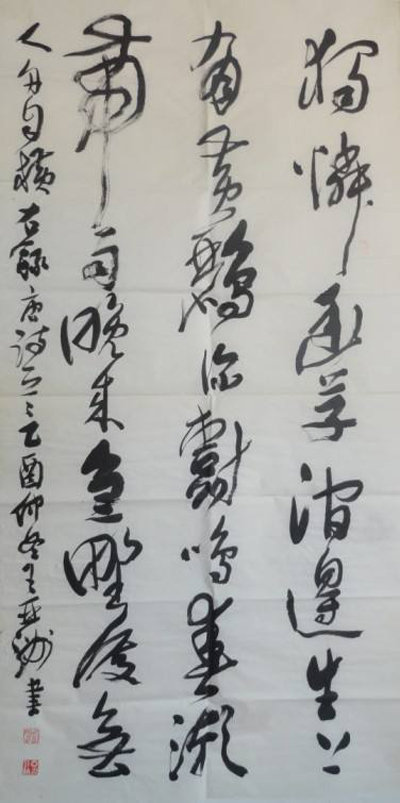 獨憐幽草澗邊生上
有黃鸝深樹鳴春潮
帶雨晚來急野渡無
人舟自橫右録唐詩乙酉仲冬王亚洲書